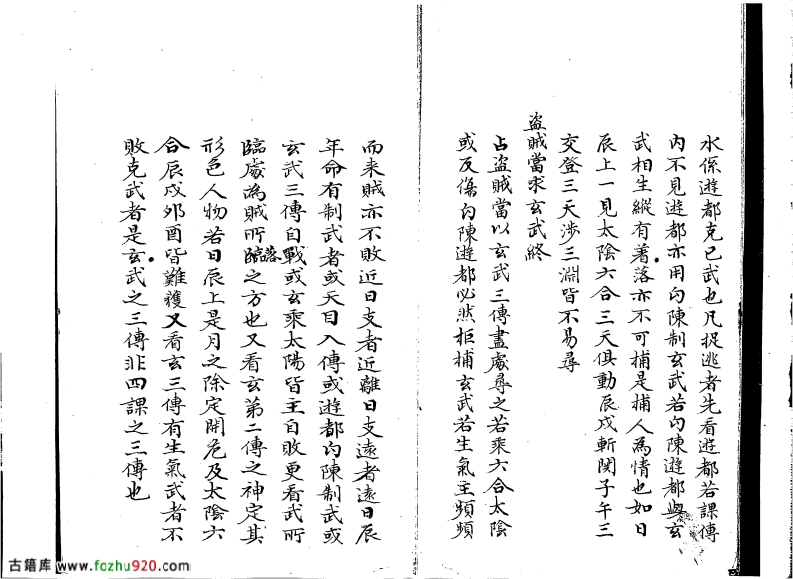 水係遊都克已武也凡捉逃者先看遊都若課傳
内不見遊都亦用勾陳制玄武若勾陳遊都與玄
武相生縱有著落亦不可捕是捕人為情也如日
辰上一見太陰六合三天俱動辰戌斬関子午三
交登三天涉三淵皆不易尋
盗賊當求玄武終
占盗賊當以玄武三傳盡處尋之若乘六合太陰
或反傷勾陳遊都必然拒捕玄武若生氣主頻頻
而来賊亦不敗近日支者近離日支遠者遠日辰
年命有制武者或天目入傳或遊都勾陳制武或
玄武三傳自戰或玄乘太陽皆主自敗更看武所
臨處為賊所落臨之方也又看玄第二傳之神定其
形色人物若日辰上是月之除定開危及太陰六
合辰戌夘酉皆難獲又看玄三傳有生氣武者不
敗克武者是玄武之三傳非四課之三傳也
古籍库 www.fozhu920.com